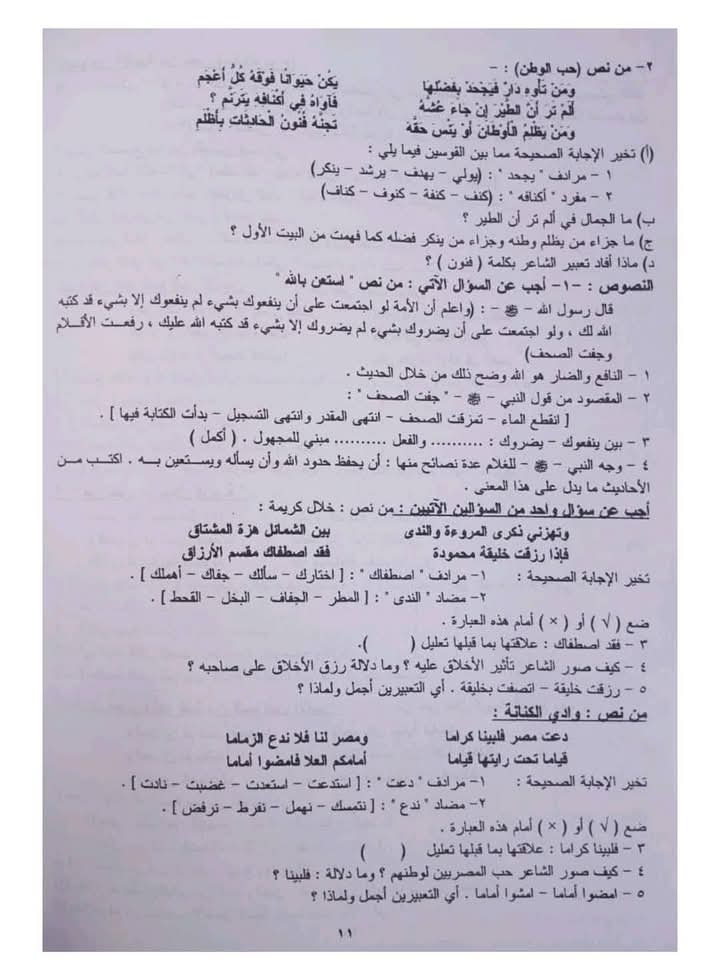 ٢- من نص (حب الوطن) : -
وَمَنْ تَأْوِهِ دَارٌ فَيَجْحَدْ بِفَضْلِهَا يَكُنْ حَيَوَانًا فَوْقَهُ كُلُّ أَعْجَمِ
أَلَمْ تَرَ أَنَّ الطَّيْرَ إِنْ جَاءَ عُشَّهُ فَآوَاهُ فِي أَكْنَافِهِ يَتَرَنَّمِ ؟
وَمَنْ يَظْلِمِ الْأَوْطَانَ أَوْ يَنْسَ حَقَّهُ تَجِئْهُ فُنُونُ الْحَادِثَاتِ بِأَظْلَمِ
(أ) تخير الإجابة الصحيحة مما بين القوسين فيما يلي :
١ - مرادف " يجحد " : (يولي - يهدف - يرشد - ينكر)
٢ - مفرد " أكنافه " : (كنف - كنفة - كنوف - كناف)
ب) ما الجمال في ألم تر أن الطير ؟
ج) ما جزاء من يظلم وطنه وجزاء من ينكر فضله كما فهمت من البيت الأول ؟
د) ماذا أفاد تعبير الشاعر بكلمة ( فنون ) ؟
النصوص : -١- أجب عن السؤال الآتي : من نص " استعن بالله "
قال رسول الله - ﷺ - : (واعلم أن الأمة لو اجتمعت على أن ينفعوك بشيء لم ينفعوك إلا بشيء قد كتبه
الله لك ، ولو اجتمعت على أن يضروك بشيء لم يضروك إلا بشيء قد كتبه الله عليك ، رفعت الأقلام
وجفت الصحف)
١ - النافع والضار هو الله وضح ذلك من خلال الحديث .
٢ - المقصود من قول النبي - ﷺ - " جفت الصحف " :
[ انقطع الماء - تمزقت الصحف - انتهى المقدر وانتهى التسجيل - بدأت الكتابة فيها ] .
٣ - بين ينفعوك - يضروك : .......... والفعل .......... مبني للمجهول . ( أكمل )
٤ - وجه النبي - ﷺ - للغلام عدة نصائح منها : أن يحفظ حدود الله وأن يسأله ويستعين به . اكتب من
الأحاديث ما يدل على هذا المعنى .
أجب عن سؤال واحد من السؤالين الآتيين : من نص : خلال كريمة :
وتهزني ذكرى المروءة والندى بين الشمائل هزة المشتاق
فإذا رزقت خليقة محمودة فقد اصطفاك مقسم الأرزاق
تخير الإجابة الصحيحة : ١- مرادف " اصطفاك " : [ اختارك - سألك - جفاك - أهملك ] .
٢- مضاد " الندى " : [ المطر - الجفاف - البخل - القحط ] .
ضع ( √ ) أو ( × ) أمام هذه العبارة .
٣ - فقد اصطفاك : علاقتها بما قبلها تعليل ( ).
٤ - كيف صور الشاعر تأثير الأخلاق عليه ؟ وما دلالة رزق الأخلاق على صاحبه ؟
٥ - رزقت خليقة - اتصفت بخليقة . أي التعبيرين أجمل ولماذا ؟
من نص : وادي الكنانة :
دعت مصر فلبينا كراما ومصر لنا فلا ندع الزماما
قياما تحت رايتها قياما أمامكم العلا فامضوا أماما
تخير الإجابة الصحيحة : ١- مرادف " دعت " : [ استدعت - استعدت - غضبت - نادت ] .
٢- مضاد " ندع " : [ نتمسك - نهمل - نفرط - نرفض ] .
ضع ( √ ) أو ( × ) أمام هذه العبارة .
٣ - فلبينا كراما : علاقتها بما قبلها تعليل ( )
٤ - كيف صور الشاعر حب المصريين لوطنهم ؟ وما دلالة : فلبينا ؟
٥ - امضوا أماما - امشوا أماما . أي التعبيرين أجمل ولماذا ؟
١١